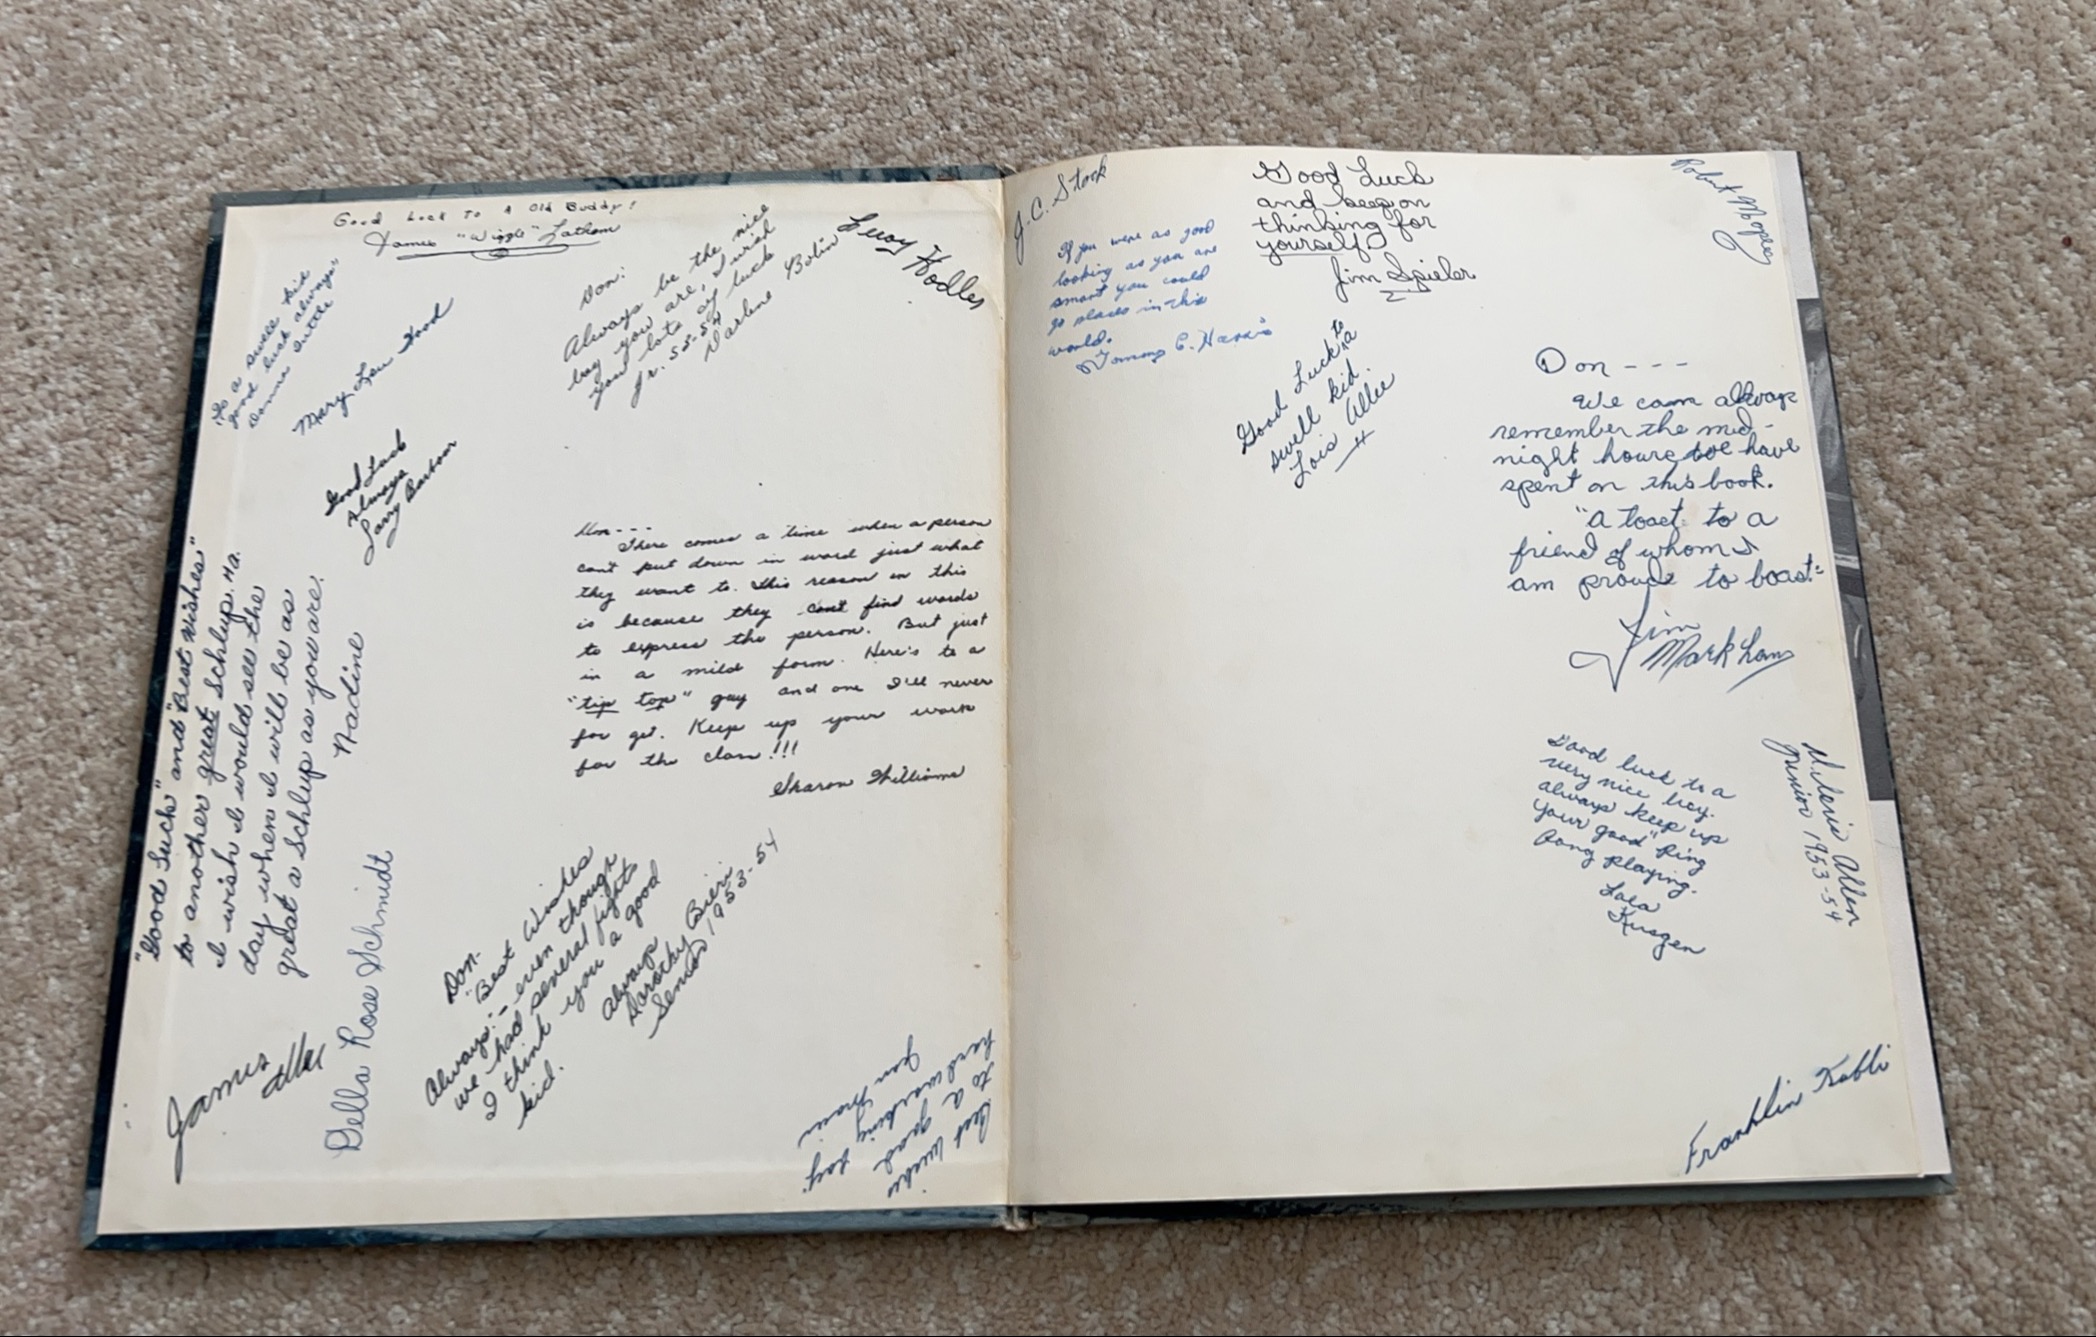 Good Luck To A Old Buddy!
James "Wiggle" Latham
To a swell kid
good luck always"
Donna Suttle
Mary Lou Hood
Good Luck
Always
Larry Barbour
Don:
Always be the nice
boy you are, I wish
you lots of luck
Jr. 53-54
Darlene Bolin
Leroy Hodler
"Good Luck" and "Best Wishes"
to another great Schlup. Ha.
I wish I would see the
day when I will be as
great a Schlup as you are.
Nadine
Della Rose Schmidt
James
Don---
There comes a time when a person
can't put down in word just what
they want to. This reason in this
is because they can't find words
to express the person. But just
in a mild form. Here's to a
"tip top" guy and one I'll never
for get. Keep up your work
for the class!!!
Sharon Williams
Don-
"Best Wishes
Always:- even though
we had several fights
I think you a good
kid.
Always
Dorothy Bieri
Senior 1953-54
Best wishes
to a good
hard working boy.
J.C. Stork
If you were as good
looking as you are
smart you could
go places in this
world.
Tommy C. Harris
Good Luck
and keep on
thinking for
yourself.
Jim Spieler
Robert
Good Luck to a
swell kid.
Lois Allee
Don---
We can always
remember the mid-
night hours we have
spent on this book.
"A toast to a
friend of whom I
am proud to boast."
Jim
Markham
Good luck to a
very nice boy.
Always keep up
your good "Ping
Pong playing.
Lola
Kusgen
Allen
Junior 1953-54
Franklin Kobli